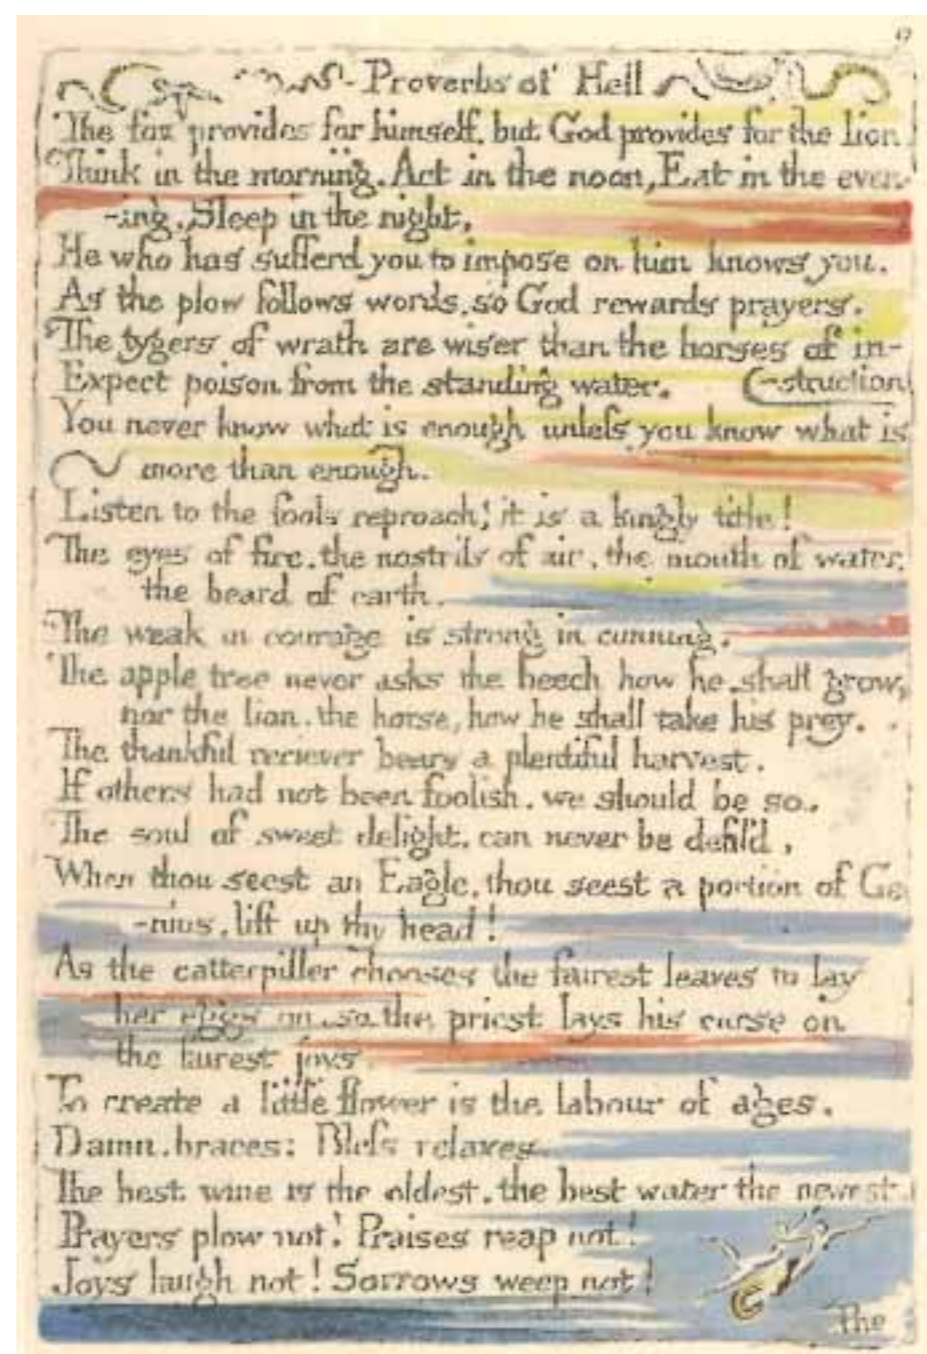 Proverbs of Hell
The fox provides for himself. but God provides for the lion
Think in the morning. Act in the noon, Eat in the even-
-ing. Sleep in the night.
He who has sufferd you to impose on him knows you.
As the plow follows words, so God rewards prayers.
The tygers of wrath are wiser than the horses of in-
Expect poison from the standing water. (-struction
You never know what is enough unless you know what is
more than enough.
Listen to the fools reproach! it is a kingly title!
The eyes of fire. the nostrils of air, the mouth of water.
the beard of earth.
The weak in courage is strong in cunning.
The apple tree never asks the beech how he shall grow,
nor the lion. the horse, how he shall take his prey.
The thankful reciever bears a plentiful harvest.
If others had not been foolish. we should be so.
The soul of sweet delight. can never be defil'd,
When thou seest an Eagle. thou seest a portion of Ge
-nius. lift up thy head!
As the catterpiller chooses the fairest leaves to lay
her eggs on. so the priest lays his curse on
the fairest joys.
To create a little flower is the labour of ages.
Damn. braces: Bless relaxes.
The best wine is the oldest. the best water the newest.
Prayers plow not! Praises reap not!
Joys laugh not! Sorrows weep not!
The